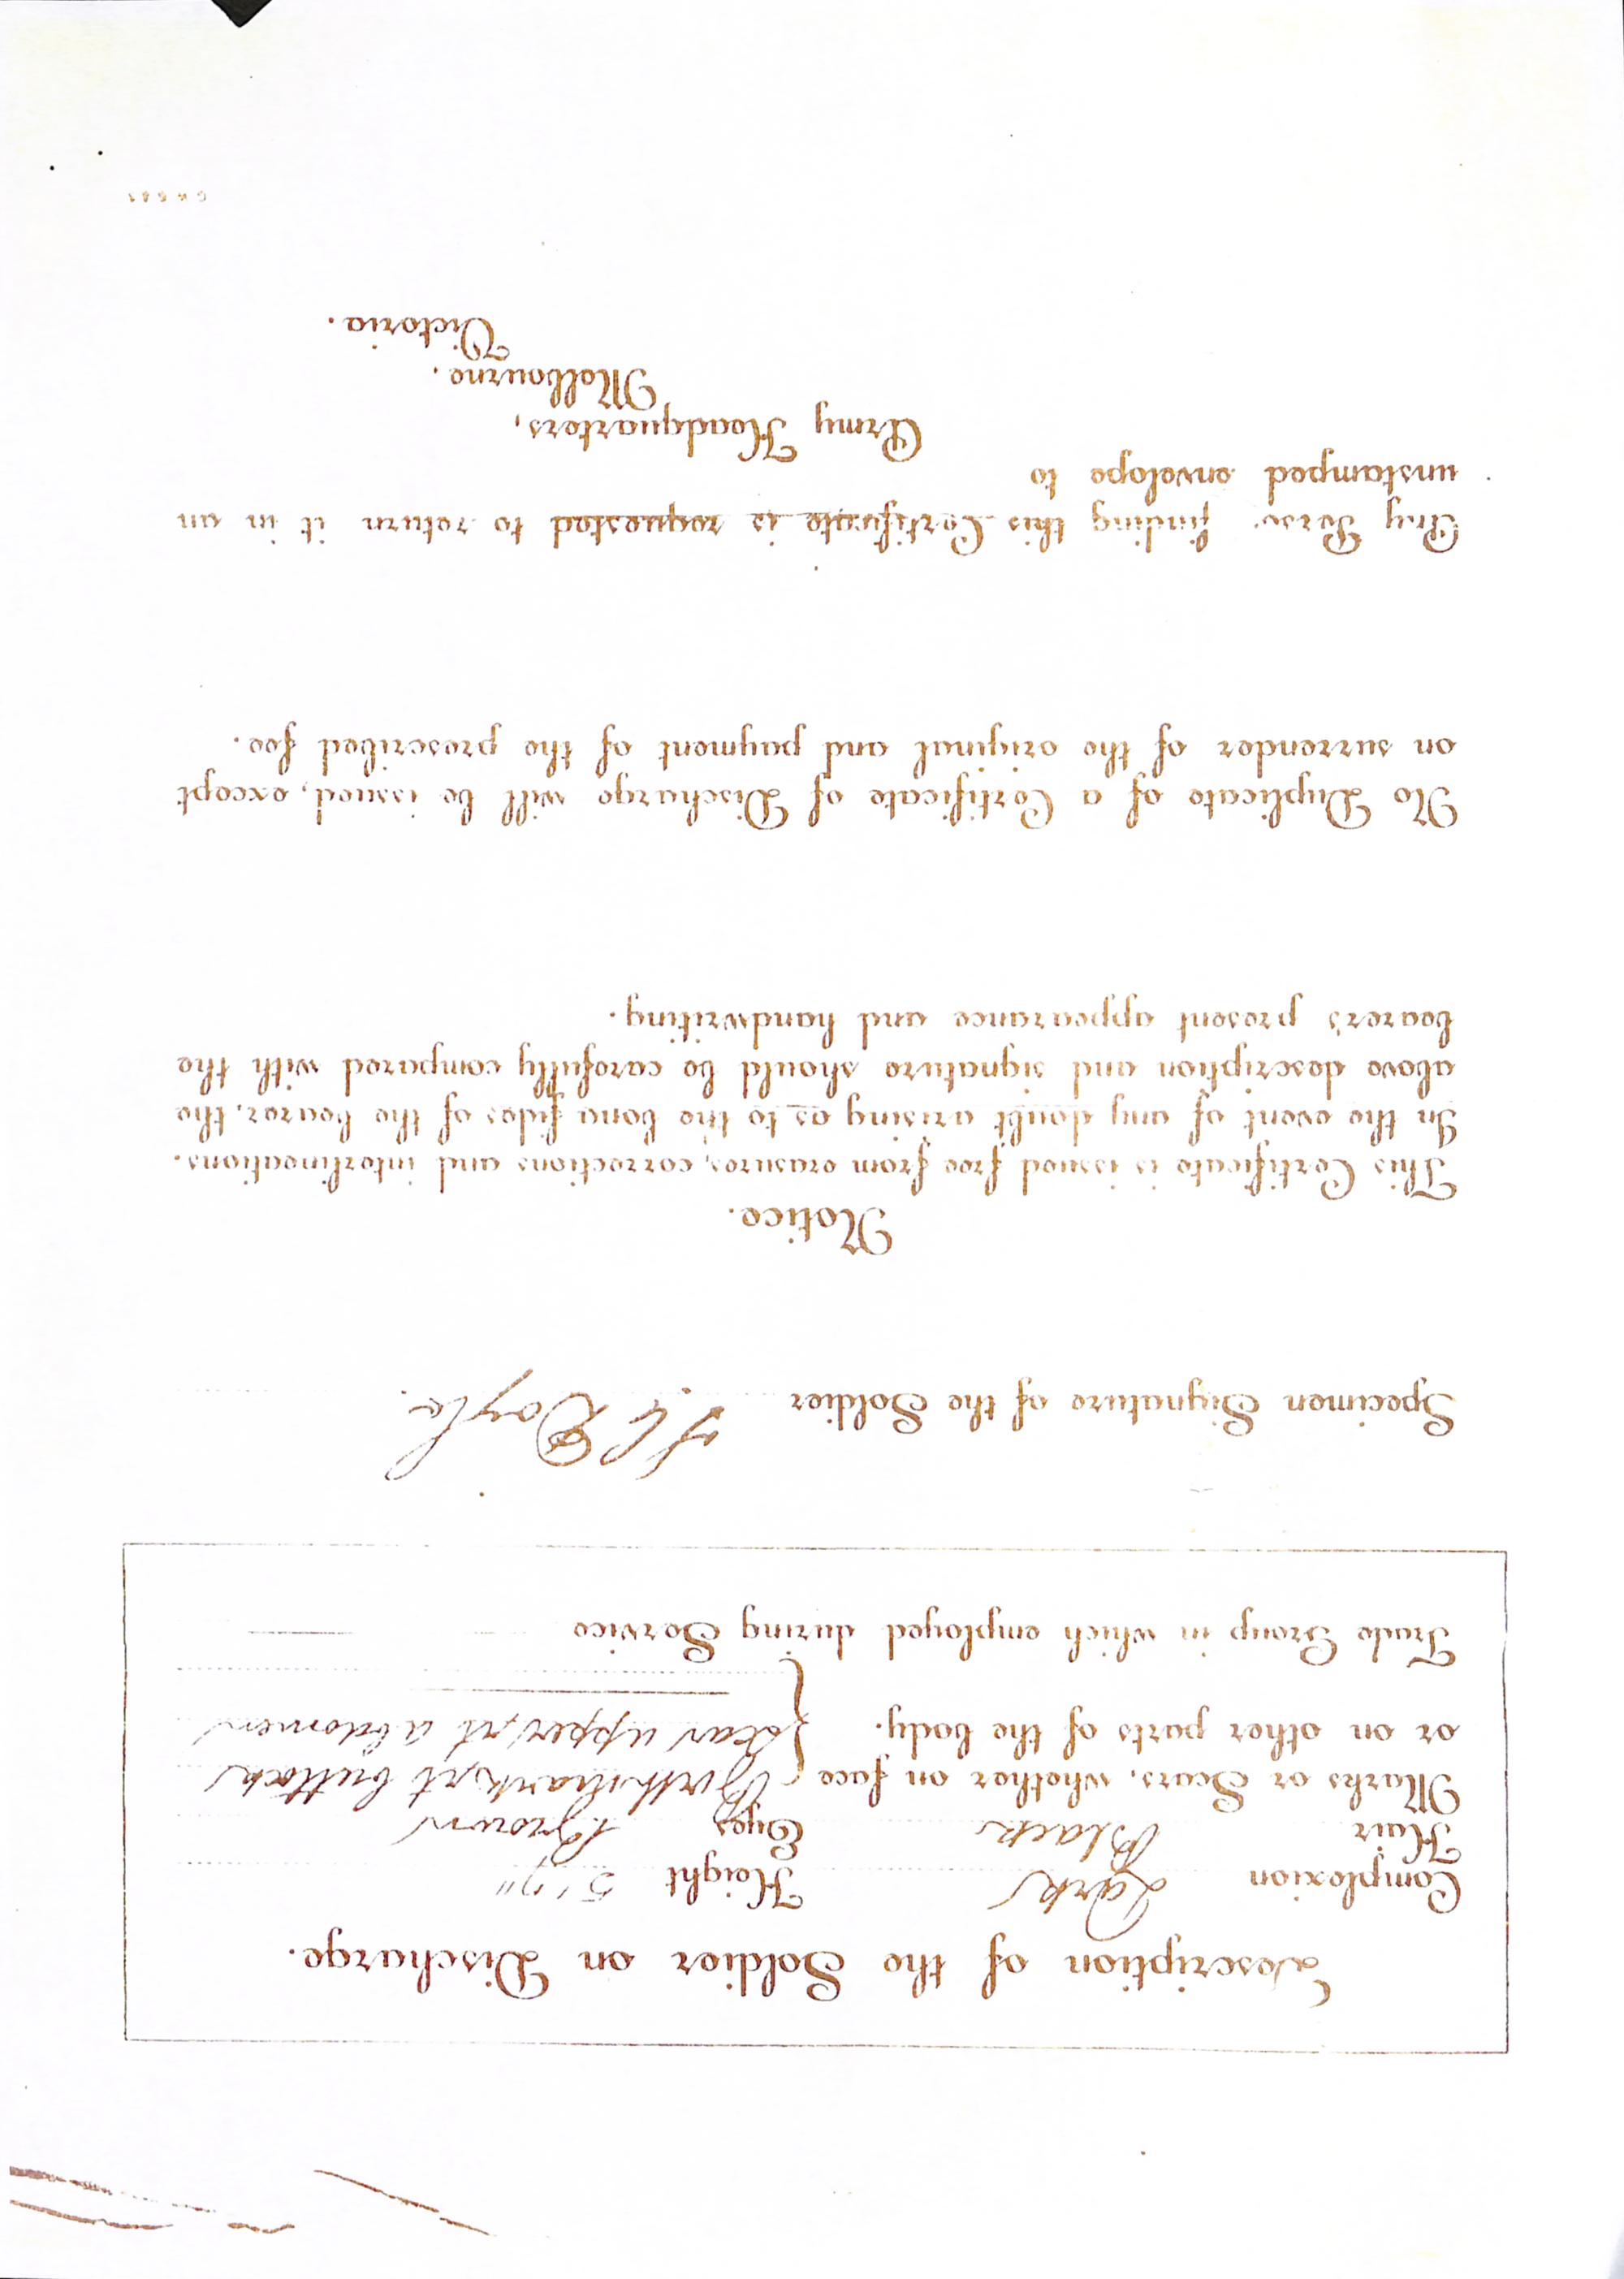 Description of the Soldier on Discharge.
Complexion Dark Height 5'7"
Hair Black Eyes Brown
Marks or Scars, whether on face Birthmark, rt buttock
or on other parts of the body. Scar upper, rt abdomen
Trade Group in which employed during Service
Specimen Signature of the Soldier Doyle.
Notice.
This Certificate is issued free from erasures, corrections and interlineations.
In the event of any doubt arising as to the bona fides of the bearer, the
above description and signature should be carefully compared with the
bearer's present appearance and handwriting.
No Duplicate of a Certificate of Discharge will be issued, except
on surrender of the original and payment of the prescribed fee.
Any Perso. finding this Certificate is requested to return it in an
unstamped envelope to
Army Headquarters,
Melbourne.
Victoria.